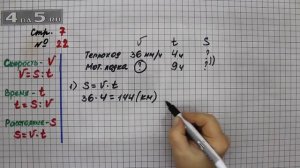 4 on 5.ru
Стр. 7
№ 22
Скорость - V
V = S : t
Время - t
t = S : V
Расстояние - S
S = V · t
V t S
Теплоход 36 км/ч 4 ч ?
Мот. лодка ? 9 ч ?
1) S = V · t
36 · 4 = 144 (км)